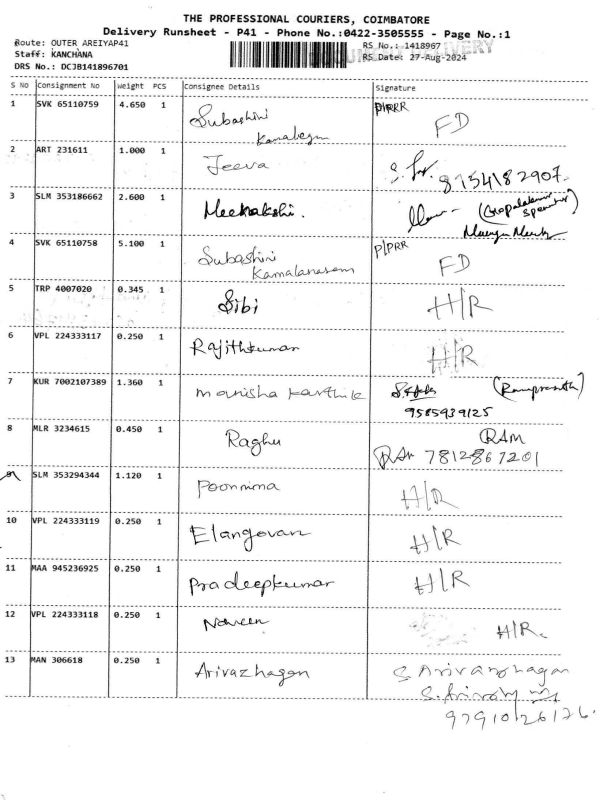 THE PROFESSIONAL COURIERS, COIMBATORE
Delivery Runsheet - P41 - Phone No.:0422-3505555 - Page No.:1
Route: OUTER AREIYAP41
RS No.: 1418967
DELIVERY
Staff: KANCHANA
RS Date: 27-Aug-2024
DRS No.: DCJB141896701
S No Consignment No Weight PCS Consignee Details Signature
1 SVK 65110759 4.650 1 Subashini P/PRR FD
2 ART 231611 1.000 1 Jeeva 8754182907
3 SLM 353186662 2.600 1 Meenakshi.
4 SVK 65110758 5.100 1 Subashini P/PRR FD
Kamalanasem
5 TRP 4007020 0.345 1 Sibi H/R
6 VPL 224333117 0.250 1 Rajithkumar H/R
7 KUR 7002107389 1.360 1 manisha karthik (Ramprasath)
9585939125
8 MLR 3234615 0.450 1 Raghu RAM
RAM 7812867201
9 SLM 353294344 1.120 1 Poornima H/R
10 VPL 224333119 0.250 1 Elangovan H/R
11 MAA 945236925 0.250 1 Pradeepkumar H/R
12 VPL 224333118 0.250 1 Naveen H/R.
13 MAN 306618 0.250 1 Arivazhagan S Arivazhagan
97910/26126.